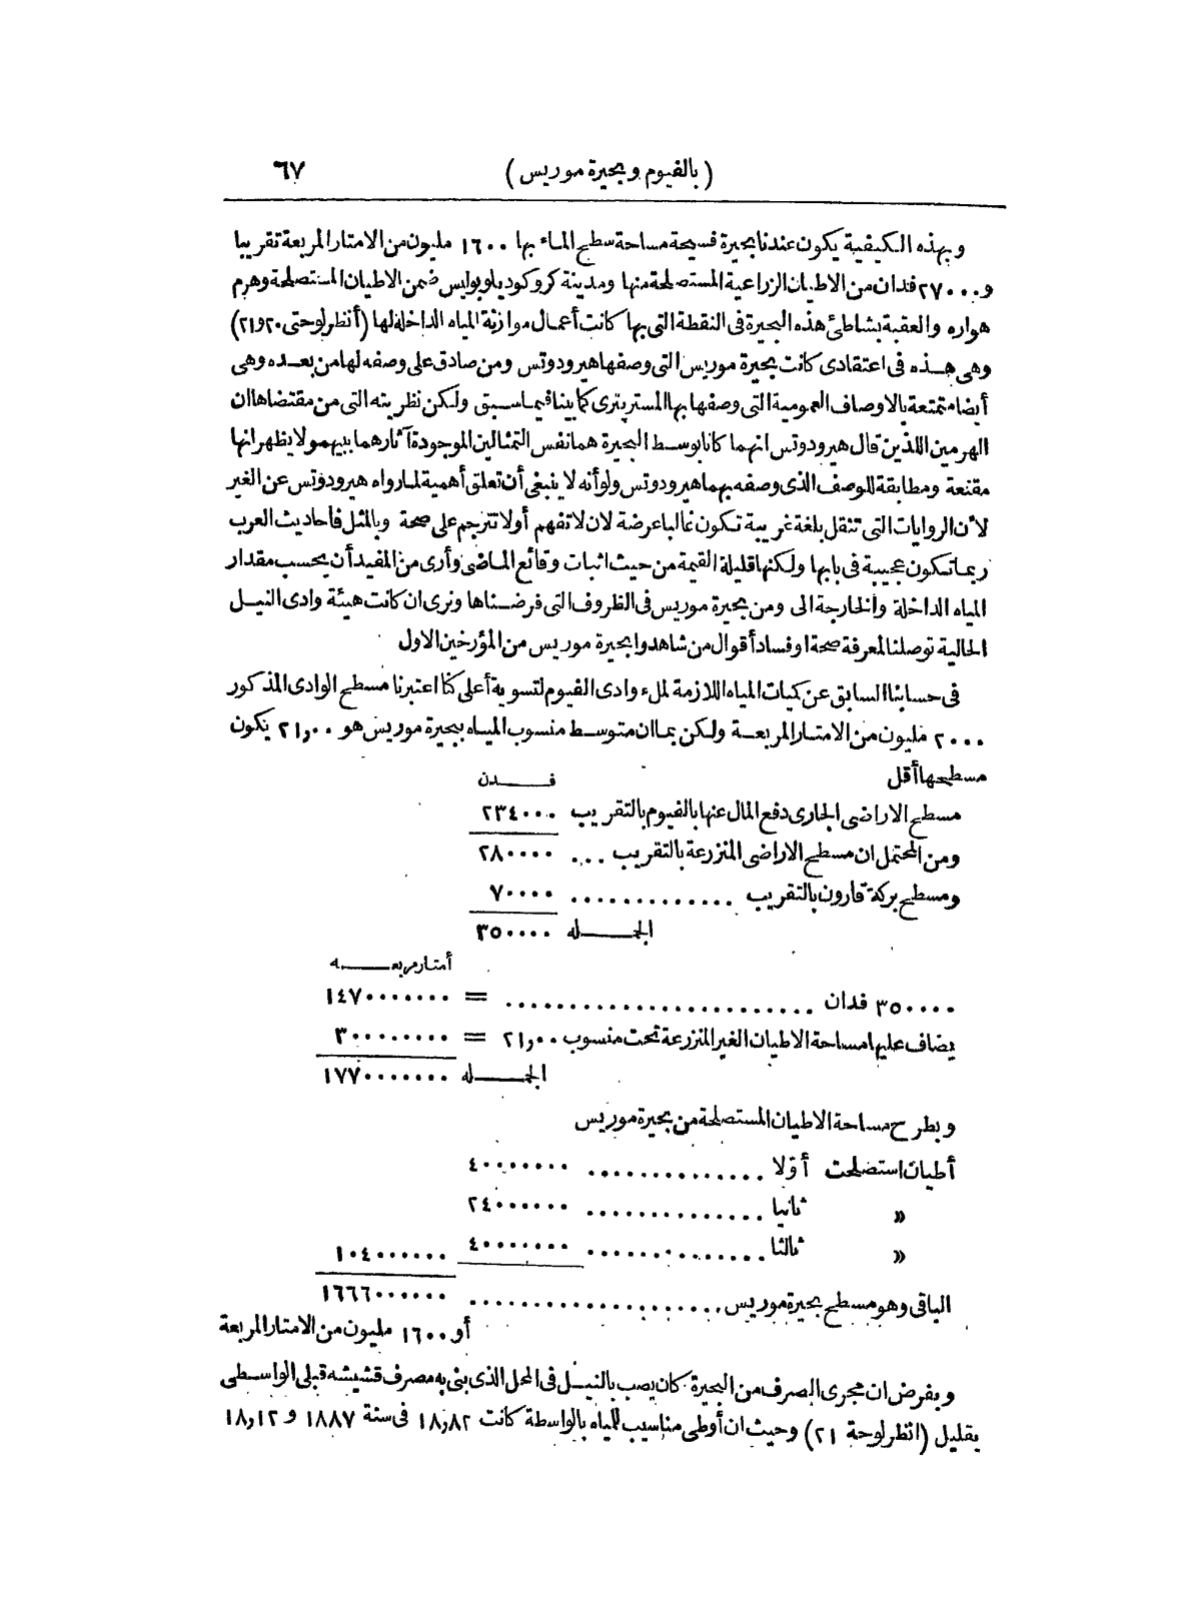 (بالفيوم وبحيرة موريس) ٦٧
وبهذه الكيفية يكون عندنا بحيرة فسيحة مساحة سطح الماء بها ١٦٠٠ مليون من الامتار المربعة تقريبا
و٢٧٠٠٠ فدان من الاطيان الزراعية المستصلحة منها ومدينة كروكوديلوبوليس ضمن الاطيان المستصلحة وهرم
هواره والعقبة بشاطئ هذه البحيرة فى النقطة التى بها كانت أعمال موازنة المياه الداخلة لها (أنظر لوحتى ٢٠ و٢١)
وهى هذه فى اعتقادى كانت بحيرة موريس التى وصفها هيرودوتس ومن صادق على وصفه لها من بعده وهى
أيضا متمتعة بالاوصاف العمومية التى وصفها بها المستر بترى كما بينا فيما سبق ولكن نظريته التى من مقتضاها ان
الهرمين اللذين قال هيرودوتس انهما كانا بوسط البحيرة هما نفس التمثالين الموجودة آثارهما ببيهمو لا يظهر انها
مقنعة ومطابقة للوصف الذى وصفه بهما هيرودوتس ولو أنه لا ينبغى أن تعلق أهمية لما رواه هيرودوتس عن الغير
لأن الروايات التى تنقل بلغة غريبة تكون غالبا عرضة لان لا تفهم أو لا تترجم على صحة وبالمثل فأحاديث العرب
ربما تكون عجيبة فى بابها ولكنها قليلة القيمة من حيث اثبات وقائع الماضى وأرى من المفيد أن يحسب مقدار
المياه الداخلة والخارجة الى ومن بحيرة موريس فى الظروف التى فرضناها ونرى ان كانت هيئة وادى النيل
الحالية توصلنا لمعرفة صحة او فساد أقوال من شاهدوا بحيرة موريس من المؤرخين الاول
فى حسابنا السابق عن كميات المياه اللازمة لملء وادى الفيوم لتسوية أعلى كنا اعتبرنا مسطح الوادى المذكور
٢٠٠٠ مليون من الامتار المربعة ولكن بما ان متوسط منسوب المياه ببحيرة موريس هو ٢١٫٠٠ يكون
مسطحها أقل فدن
مسطح الاراضى الجارى دفع المال عنها بالفيوم بالتقريب ٢٣٤٠٠٠
ومن المحتمل ان مسطح الاراضى المنزرعة بالتقريب .... ٢٨٠٠٠٠
ومسطح بركة قارون بالتقريب ............. ٧٠٠٠٠
الجمله ٣٥٠٠٠٠
أمتار مربعه
٣٥٠٠٠٠ فدان ........................ = ١٤٧٠٠٠٠٠٠٠
يضاف عليها مساحة الاطيان الغير المنزرعة تحت منسوب ٢١٫٠٠ = ٣٠٠٠٠٠٠٠٠
الجمله ١٧٧٠٠٠٠٠٠٠
وبطرح مساحة الاطيان المستصلحة من بحيرة موريس
أطيان استصلحت أولا .............. ٤٠٠٠٠٠٠٠
« ثانيا .............. ٢٤٠٠٠٠٠٠
« ثالثا .............. ٤٠٠٠٠٠٠٠ ١٠٤٠٠٠٠٠٠
الباقى وهو مسطح بحيرة موريس .................... ١٦٦٦٠٠٠٠٠٠
أو ١٦٠٠ مليون من الامتار المربعة
وبفرض ان مجرى الصرف من البحيرة كان يصب بالنيل فى المحل الذى بنى به مصرف قشيشه قبلى الواسطى
بقليل (انظر لوحة ٢١) وحيث ان أوطى مناسيب للمياه بالواسطة كانت ١٨٫٨٢ فى سنة ١٨٨٧ و ١٨٫١٢